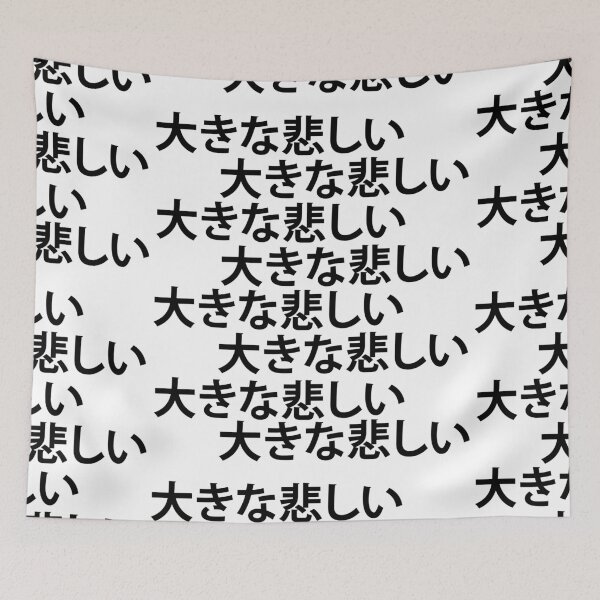 悲しい 大きな悲しい 大
しい 大きな悲しい 大き
悲しい 大きな悲しい 大
しい 大きな悲しい 大き
悲しい 大きな悲しい 大
しい 大きな悲しい 大き
悲しい 大きな悲しい 大
しい 大きな悲しい 大き
悲しい 大きな悲しい 大
しい 大きな悲しい 大き